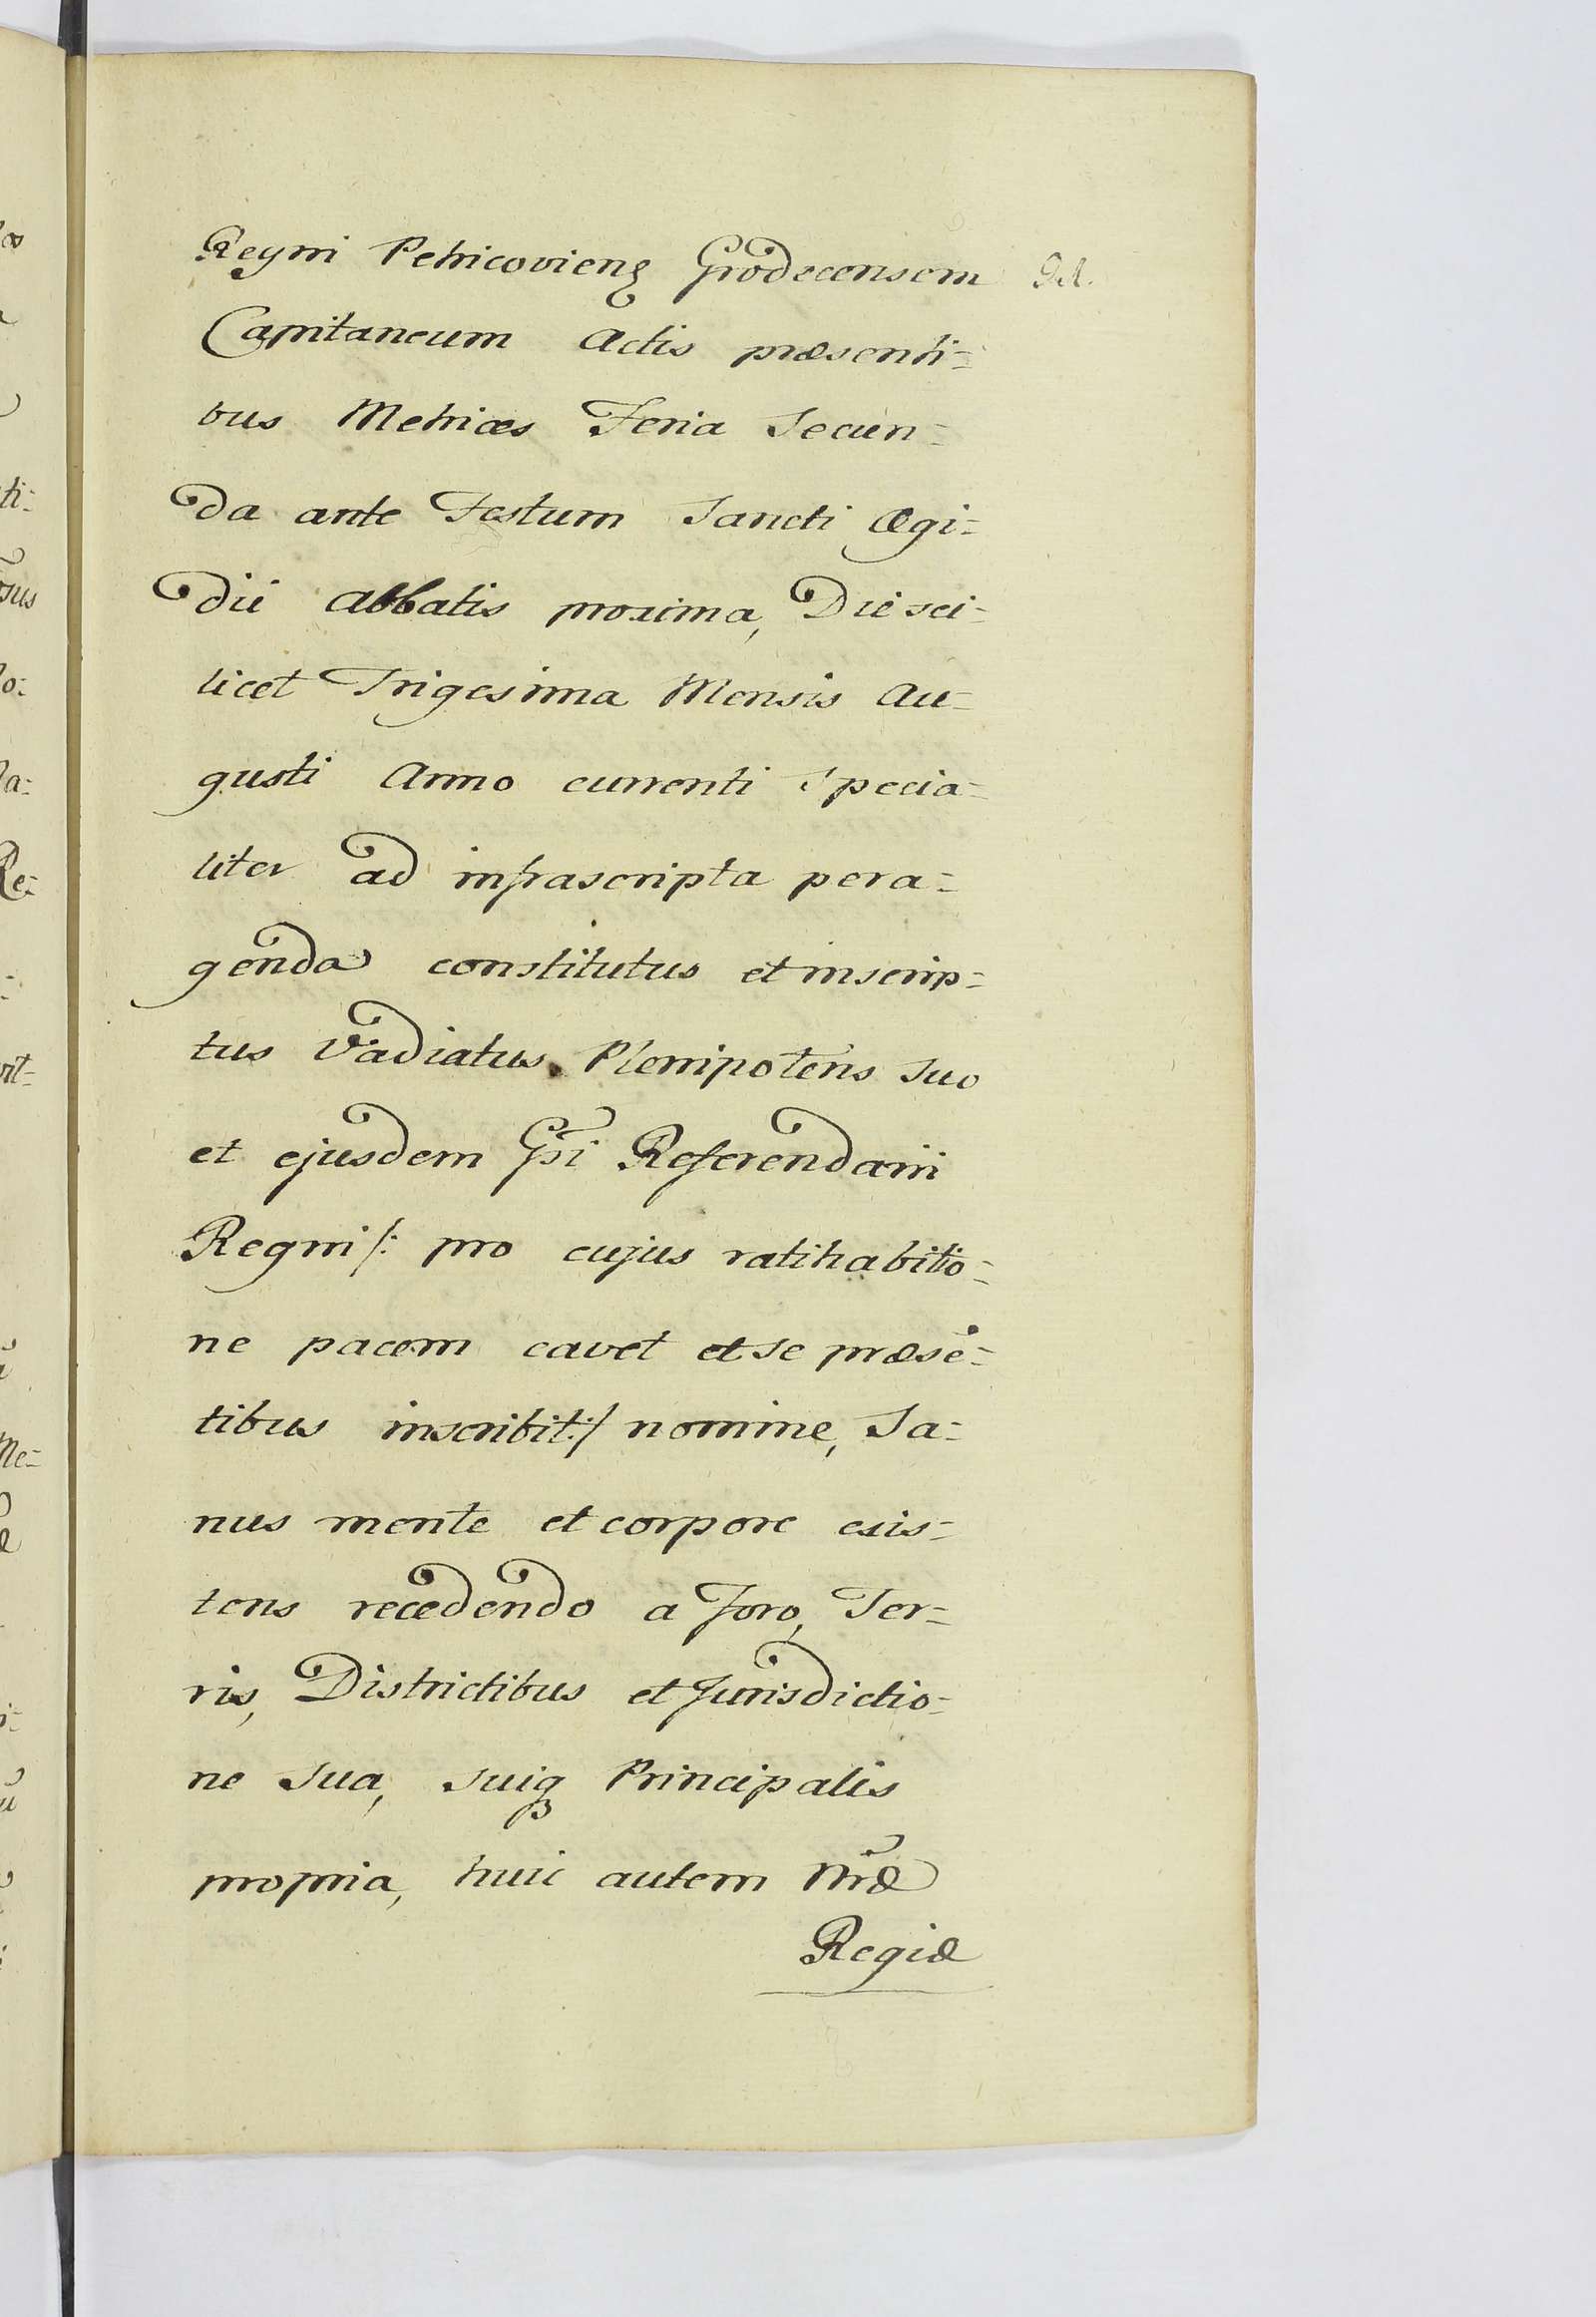 Regni Petricovienȝ Grodecensem
Capitaneum Actis præsenti=
bus Metrices Feria Secun=
da ante Festum Sancti Ægi=
dii Abbatis proxima, Die sci=
licet Trigesima Mensis Au=
gusti Anno currenti Specia=
liter ad infrascripta pera=
genda constitutus et inscrip=
tus Vadiatus. Plenipotens suo
et ejusdem Gsi Referendarii
Regni /: pro cujus ratihabitio=
ne pacem cavet et se præsē=
tibus inscribit :/ nomine, Sa=
nus mente et corpore exis=
tens recedendo a Foro, Ter=
ris, Districtibus et Jurisdictio=
ne sua, suiqȝ Principalis
propria, huic autem Mræ
Regiæ